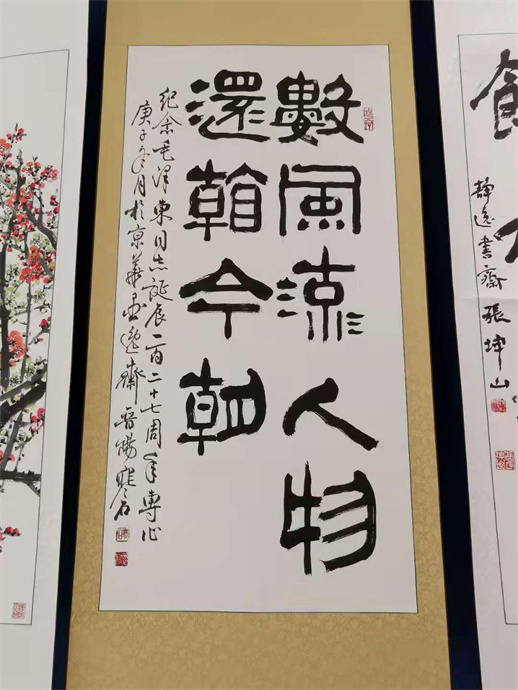 數風流人物
還看今朝
紀念毛澤東同志誕辰一百二十七周年專作
庚子冬月於京華逸齋晋陽石
静逸書齋張坤山